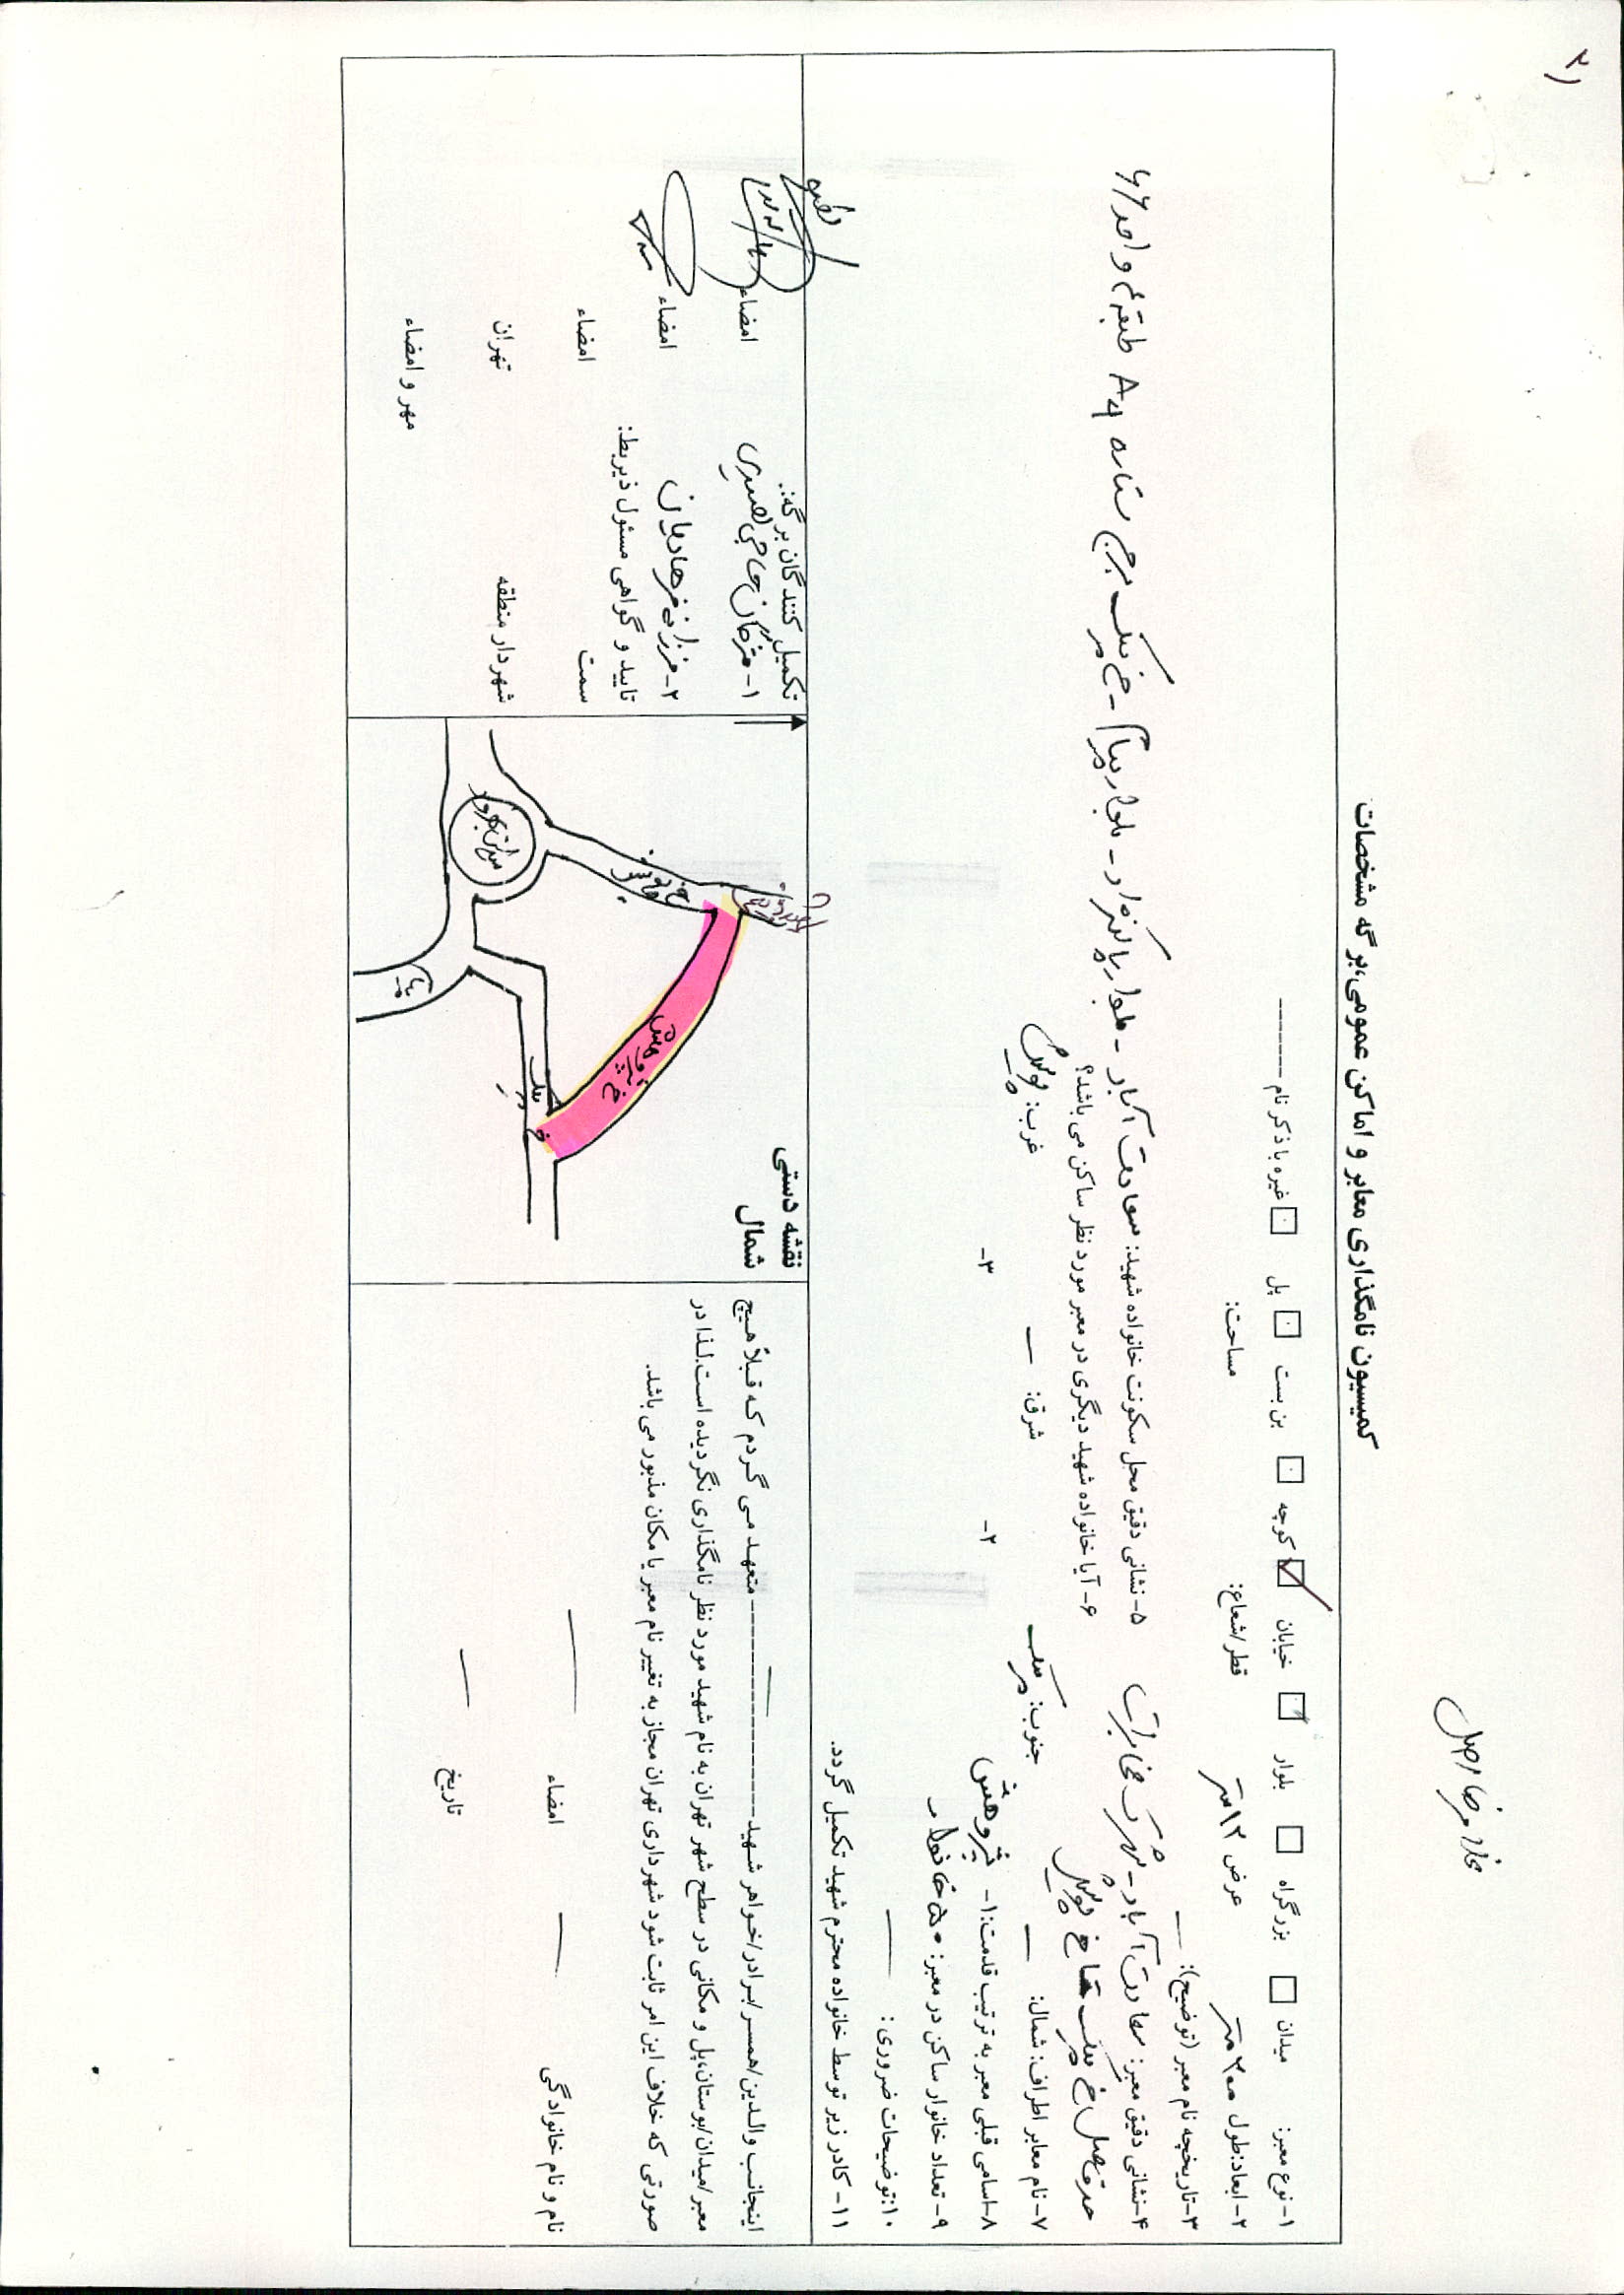 کمیسیون نامگذاری معابر و اماکن عمومی،برگه مشخصات
۱- نوع معبر: میدان بزرگراه بلوار خیابان کوچه بن بست پل غیره با ذکر نام --------
۲- ابعاد:طول ۲۰۰ متر عرض ۱۲ متر قطر/شعاع: مساحت:
۳-تاریخچه نام معبر (توضیح): —
۴-نشانی دقیق معبر: سعادت آباد - شهرک مخابرات
حدفاصل خ پیک تا خ پویش
۵- نشانی دقیق محل سکونت خانواده شهید: سعادت آباد - بلوار پاکنژاد - بلوار پیام - خ پیک برج ستاره A4 طبقه ۶ واحد ۶۶
۶- آیا خانواده شهید دیگری در معبر مورد نظر ساکن می باشد؟
۷- نام معابر اطراف: شمال: — جنوب: پیک شرق: — غرب: پویش
۸-اسامی قبلی معبر به ترتیب قدمت:۱- پژوهش ۲- ۳-
۹- تعداد خانوار ساکن در معبر: ۵۰ خانوار
۱۰:توضیحات ضروری: —
۱۱- کادر زیر توسط خانواده محترم شهید تکمیل گردد.
اینجانب والدین/همسر/برادر/خواهر شهید-------------------- متعهد می گردم که قبلاً هیچ
معبر/میدان/بوستان،پل و مکانی در سطح شهر تهران به نام شهید مورد نظر نامگذاری نگردیده است.لذا در
صورتی که خلاف این امر ثابت شود شهرداری تهران مجاز به تغییر نام معبر یا مکان مذبور می باشد.
نام و نام خانوادگی — امضاء —
تاریخ —
نقشه دستی
شمال
خ پویش
خ پژوهش
خ پیک
تکمیل کنندگان برگه:
۱- مژگان حاجی نصیری امضاء
۲- فرزانه فرهادیان امضاء
تایید و گواهی مسئول ذیربط:
سمت امضاء
شهردار منطقه تهران
مهر و امضاء